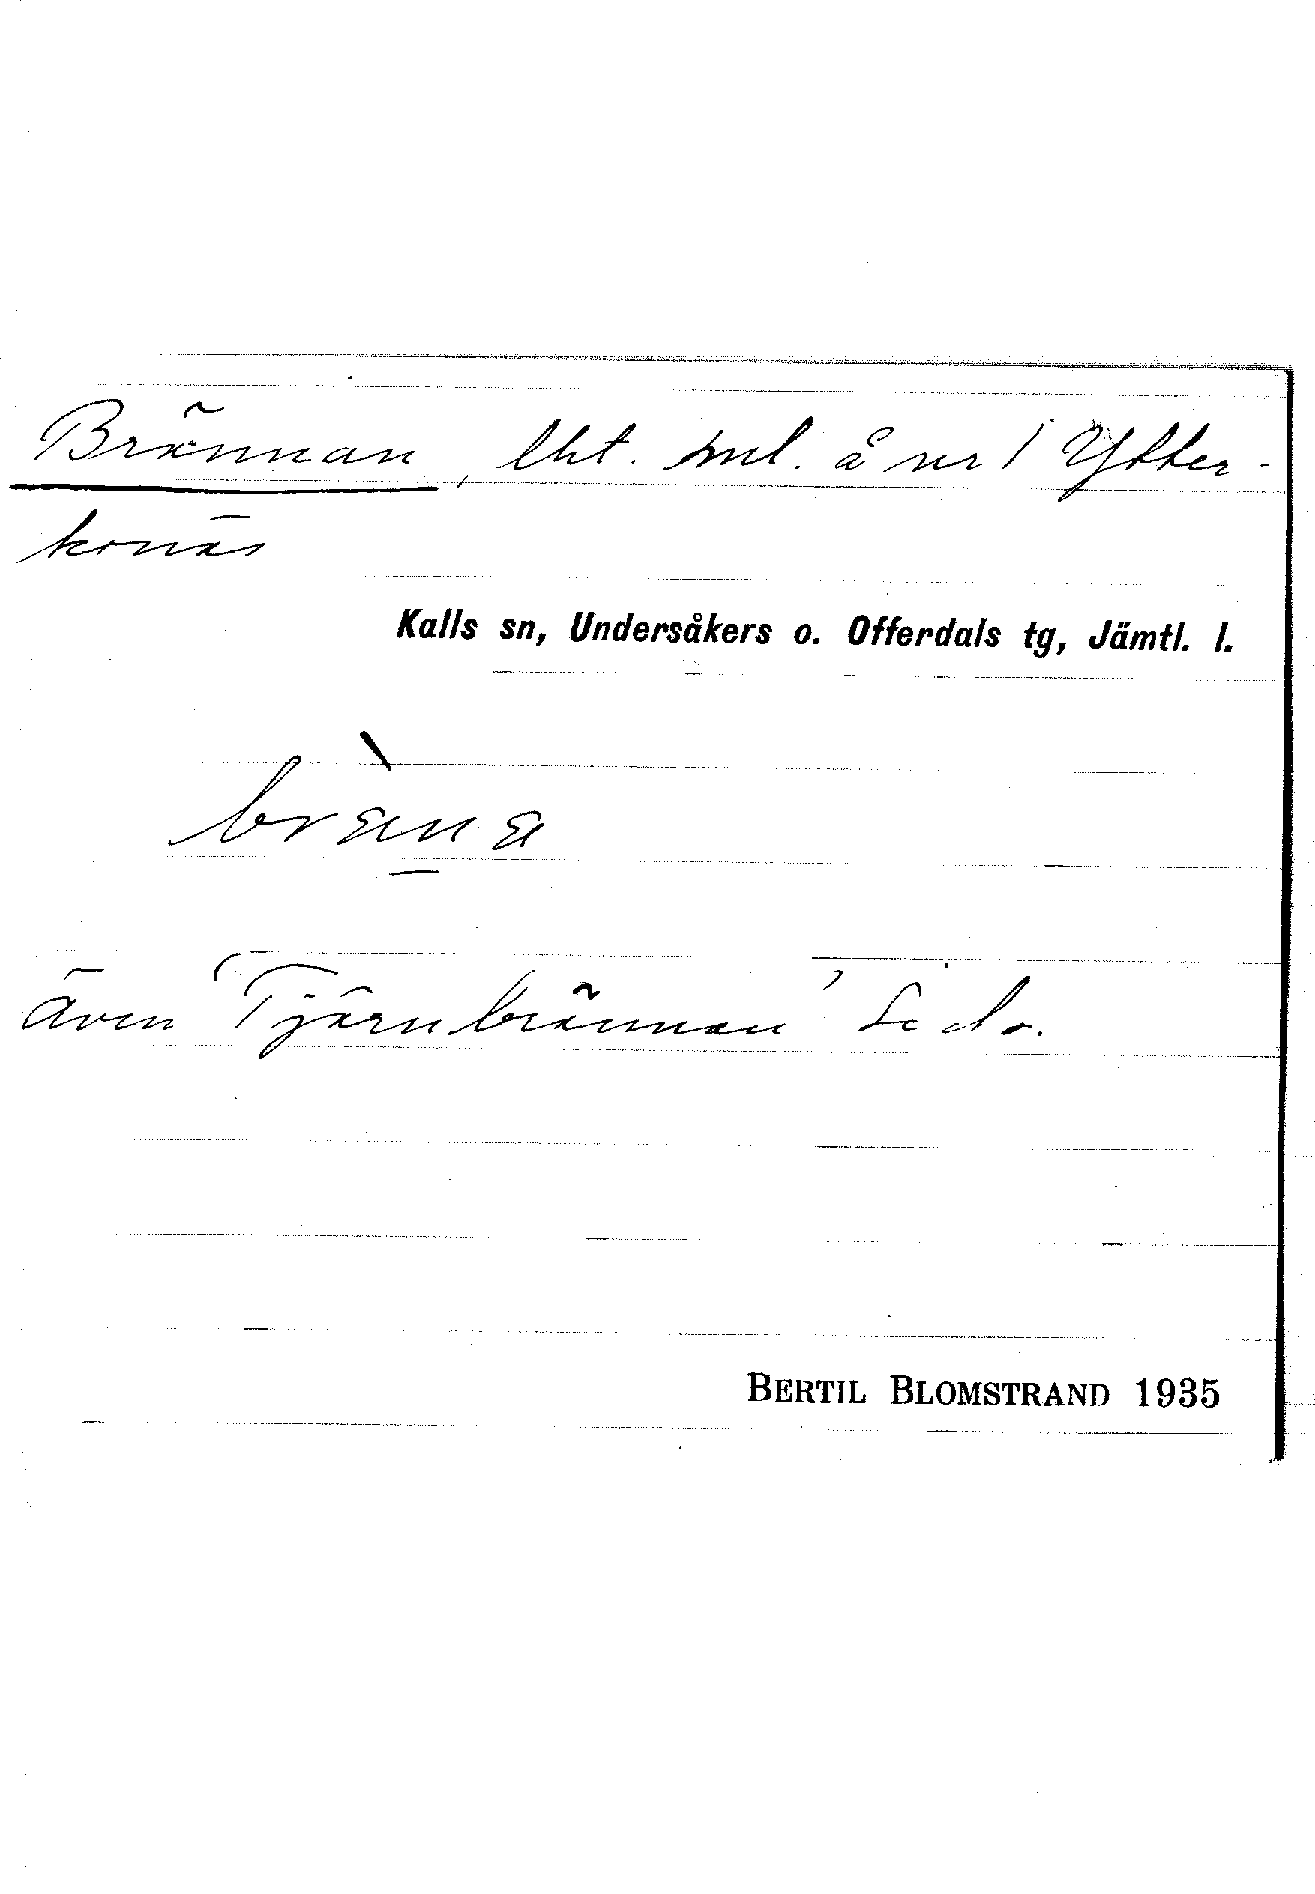 Brännan, lht. tml. å nr 1 Ytter-
konäs
Kalls sn, Undersåkers o. Offerdals tg, Jämtl. l.
bräna
även "Tjärnbrännan" Se do.
BERTIL BLOMSTRAND 1935